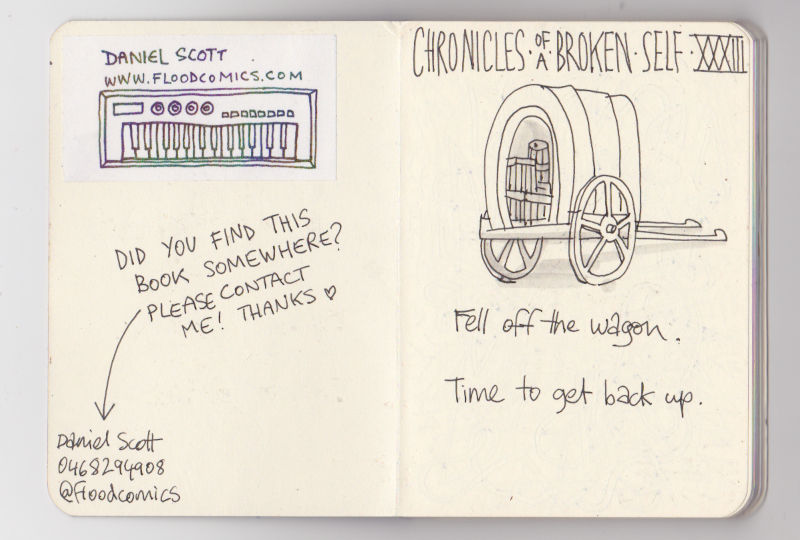 DANIEL SCOTT
WWW.FLOODCOMICS.COM
DID YOU FIND THIS
BOOK SOMEWHERE?
PLEASE CONTACT
ME! THANKS ♡
Daniel Scott
0468294908
@floodcomics
CHRONICLES · OF A · BROKEN · SELF · XXXIII
Fell off the wagon.
Time to get back up.